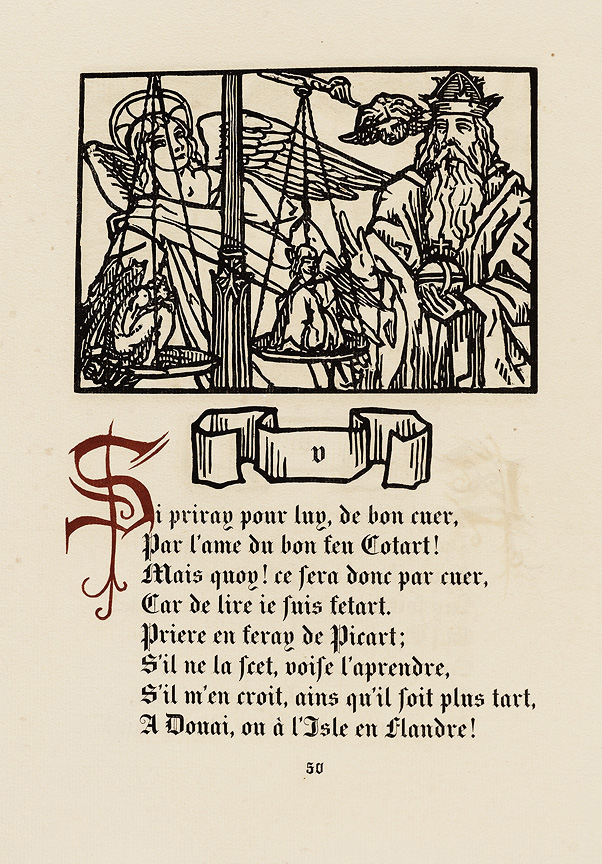 v
Si priray pour luy, de bon cuer,
Par l'ame du bon feu Cotart!
Mais quoy! ce sera donc par cuer,
Car de lire ie suis fetart.
Priere en feray de Picart;
S'il ne la scet, voise l'aprendre,
S'il m'en croit, ains qu'il soit plus tart,
A Douai, ou à l'Isle en Flandre!
50